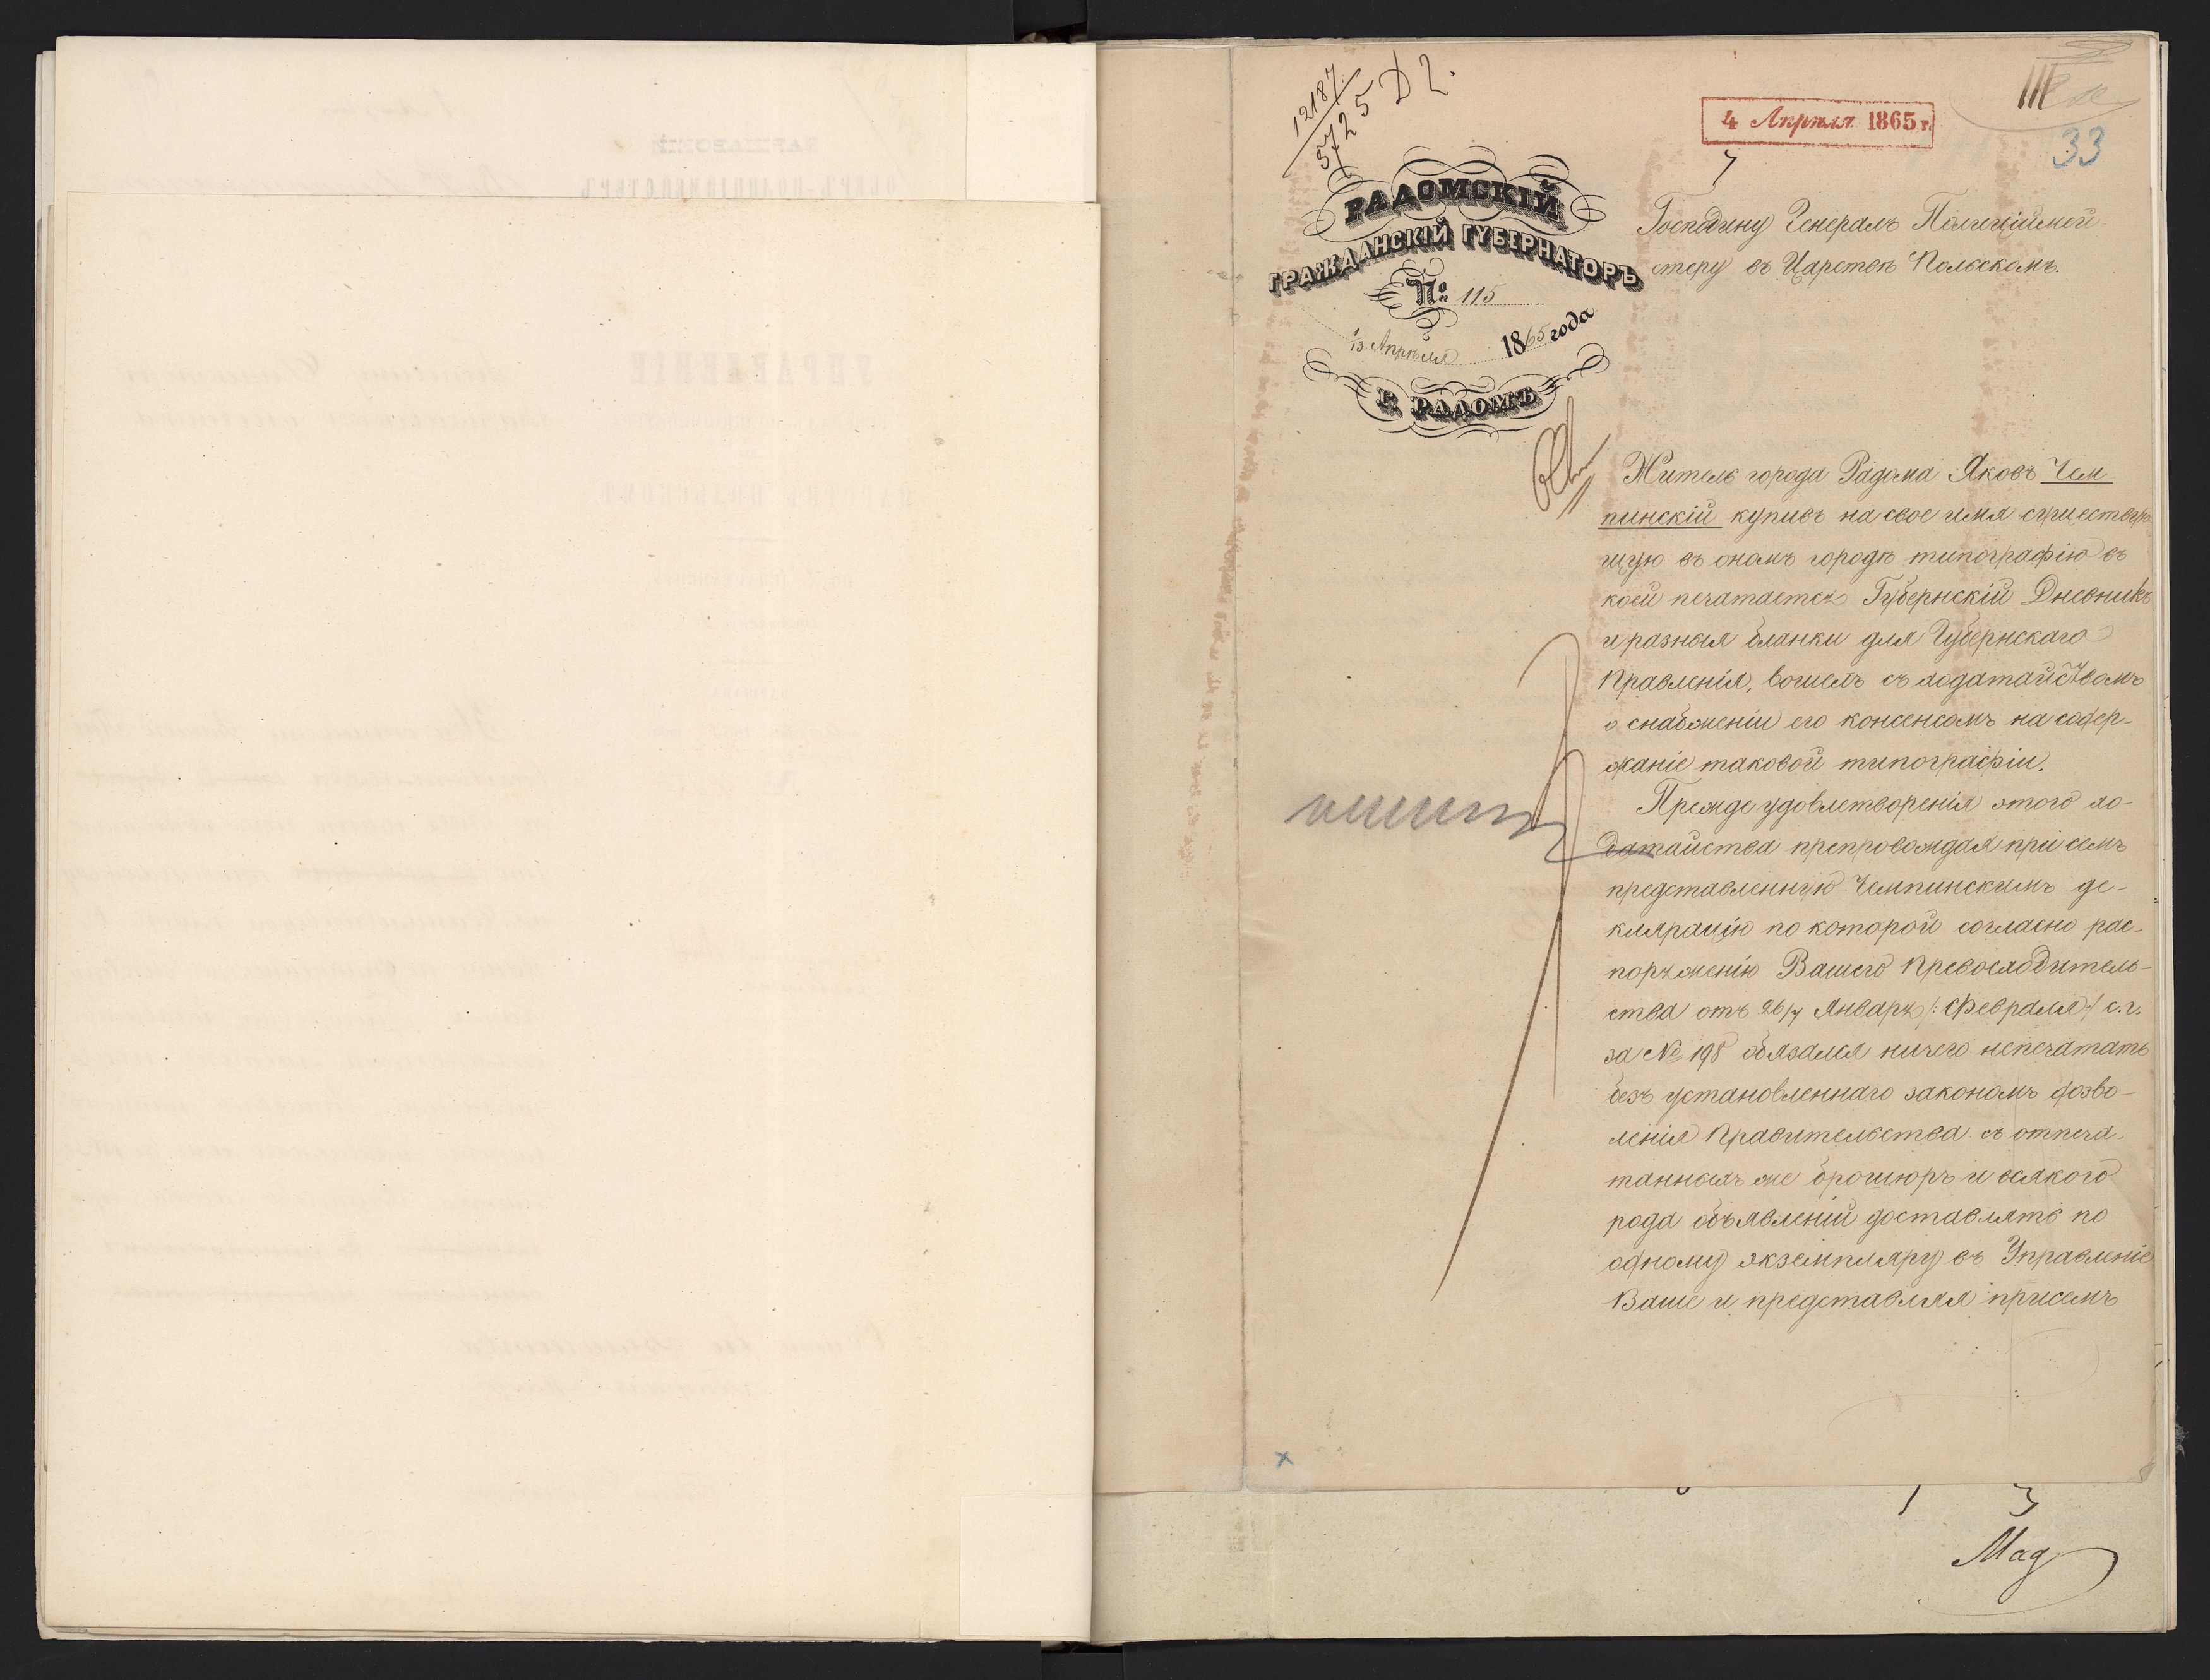 12187
5725 Д 2.
4 Апрѣля 1865 г.
III
33
РАДОМСКІЙ
ГРАЖДАНСКІЙ ГУБЕРНАТОРЪ
№ 115
1/13 Апрѣля 1865 года
Г. РАДОМЪ
Господину Генералъ Полиціймей
стеру въ Царствѣ Польскомъ.
Житель города Радома Яковъ Чем
пинскій купивъ на свое имя существую
щую въ ономъ городѣ типографію въ
коей печатается Губернскій Дневникъ
и разныя бланки для Губернскаго
Правленія, вошелъ съ ходатайствомъ
о снабженіи его консенсомъ на содер-
жаніе таковой типографіи.
Прежде удовлетворенія этого хо-
датайства препровождая при семъ
представленную Чемпинскимъ де-
клярацію по которой согласно рас-
поряженію Вашего Превосходитель-
ства отъ 26/7 Января /: Февраля :/ с. г.
за № 198 обязался ничего непечатать
безъ установленнаго закономъ дозво-
ленія Правительства съ отпеча-
танныхъ же брошюръ и всякого
рода объявленій доставлять по
одному экземпляру въ Управленіе
Ваше и представляя присемъ
Мад